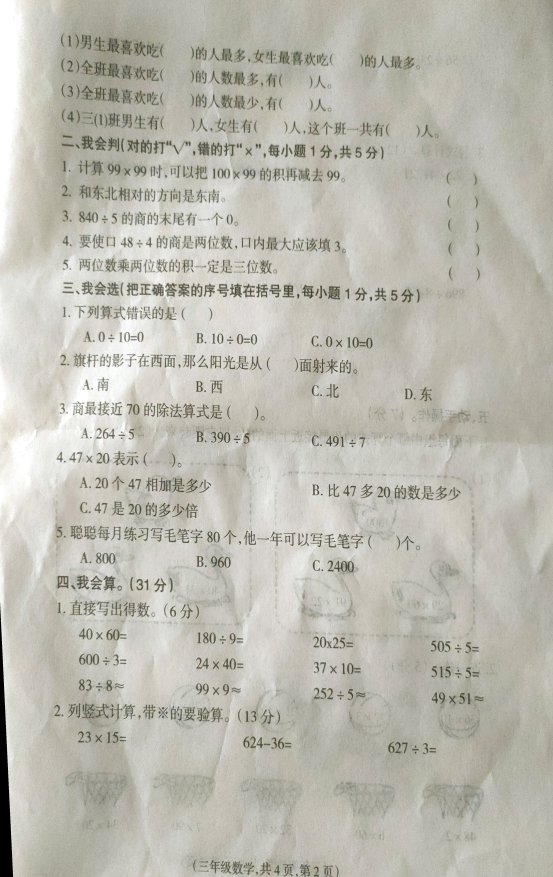 (1)男生最喜欢吃(  )的人最多,女生最喜欢吃(  )的人最多。
(2)全班最喜欢吃(  )的人数最多,有(  )人。
(3)全班最喜欢吃(  )的人数最少,有(  )人。
(4)三(1)班男生有(  )人,女生有(  )人,这个班一共有(  )人。
二、我会判(对的打“√”,错的打“×”,每小题1分,共5分)
1. 计算99×99时,可以把100×99的积再减去99。 (  )
2. 和东北相对的方向是东南。 (  )
3. 840÷5的商的末尾有一个0。 (  )
4. 要使口48÷4的商是两位数,口内最大应该填3。 (  )
5. 两位数乘两位数的积一定是三位数。 (  )
三、我会选(把正确答案的序号填在括号里,每小题1分,共5分)
1.下列算式错误的是(  )
A. 0÷10=0 B. 10÷0=0 C. 0×10=0
2. 旗杆的影子在西面,那么阳光是从(  )面射来的。
A. 南 B. 西 C. 北 D. 东
3. 商最接近70的除法算式是(  )。
A. 264÷5 B. 390÷5 C. 491÷7
4. 47×20表示(  )。
A. 20个47相加是多少 B. 比47多20的数是多少
C. 47是20的多少倍
5. 聪聪每月练习写毛笔字80个,他一年可以写毛笔字(  )个。
A. 800 B. 960 C. 2400
四、我会算。(31分)
1. 直接写出得数。(6分)
40×60= 180÷9= 20x25= 505÷5=
600÷3= 24×40= 37×10= 515÷5=
83÷8≈ 99×9≈ 252÷5≈ 49×51≈
2. 列竖式计算,带※的要验算。(13分)
23×15= 624-36= 627÷3=
(三年级数学,共4页,第2页)